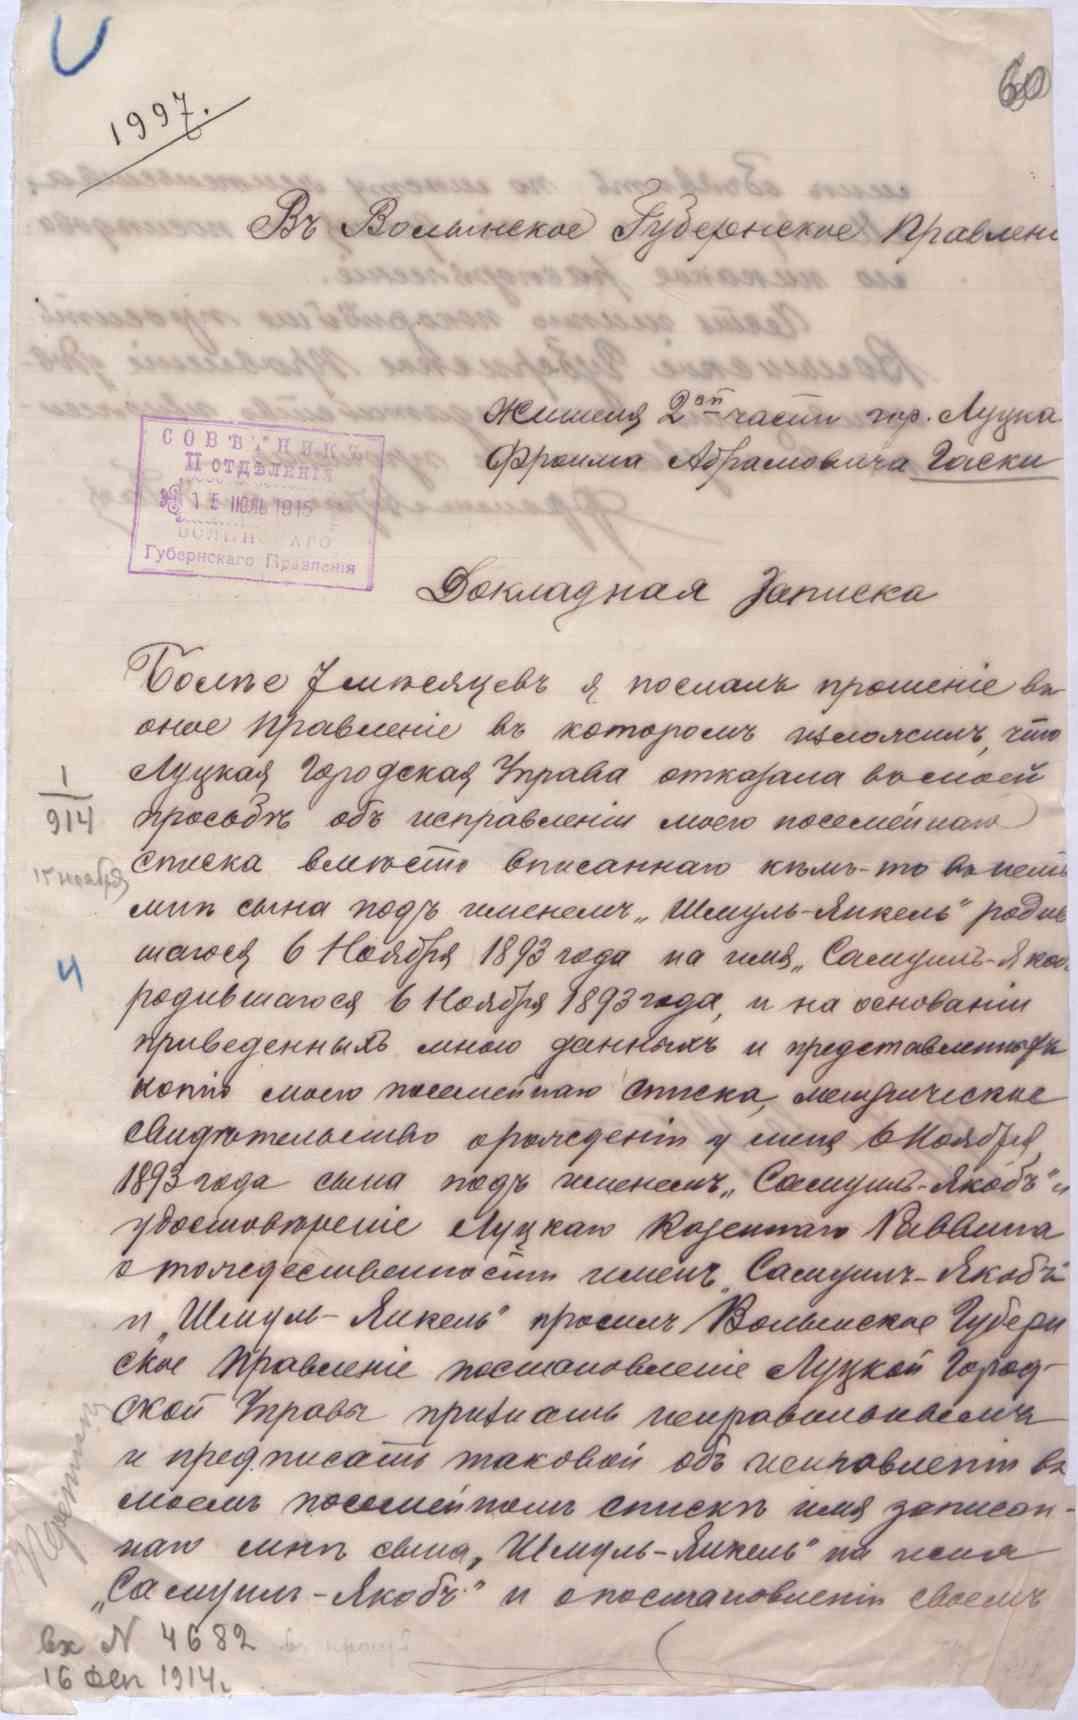 60
1997.
Въ Волынское Губернское Правлені
Жителя 2ой части гор. Луцка
Фроима Абрамовича Гаски
СОВѢТНИКЪ
II ОТДѢЛЕНІЯ
15 ІЮЛЬ 1915
ВОЛЫНСКАГО
Губернскаго Правленія
Докладная Записка
Болѣе 7 мѣсяцевъ я послалъ прошеніе въ
оное Правленіе въ которомъ изложилъ, что
Луцкая Городская Управа отказала въ моей
просьбѣ объ исправленіи моего посемейнаго
списка вмѣсто вписаннаго кѣмъ-то въ немъ
мнѣ сына подъ именемъ „Шмуль-Янкель" родив
шагося 6 Ноября 1893 года на имя „Самуилъ-Якобъ
родившагося 6 Ноября 1893 года, и на основаніи
приведенныхъ мною данныхъ и представленныхъ
копію моего посемейнаго списка, метрическое
свидѣтельство о рожденіи у меня 6 Ноября
1893 года сына подъ именемъ „Самуилъ-Якобъ" и
удостовѣреніе Луцкаго Казеннаго Раввина
о тождественности именъ „Самуилъ-Якобъ"
и „Шмуль-Янкель" просилъ Волынское Губерн
ское Правленіе постановленіе Луцкой Город-
ской Управы признать неправильнымъ
и предписать таковой объ исправленіи въ
моемъ посемейномъ спискѣ имя записан-
наго мнѣ сына „Шмуль-Янкель" на имя
„Самуилъ-Якобъ" и о постановленіи своемъ
1
914
15 ноября
4
вх N 4682
16 Деп 1914г